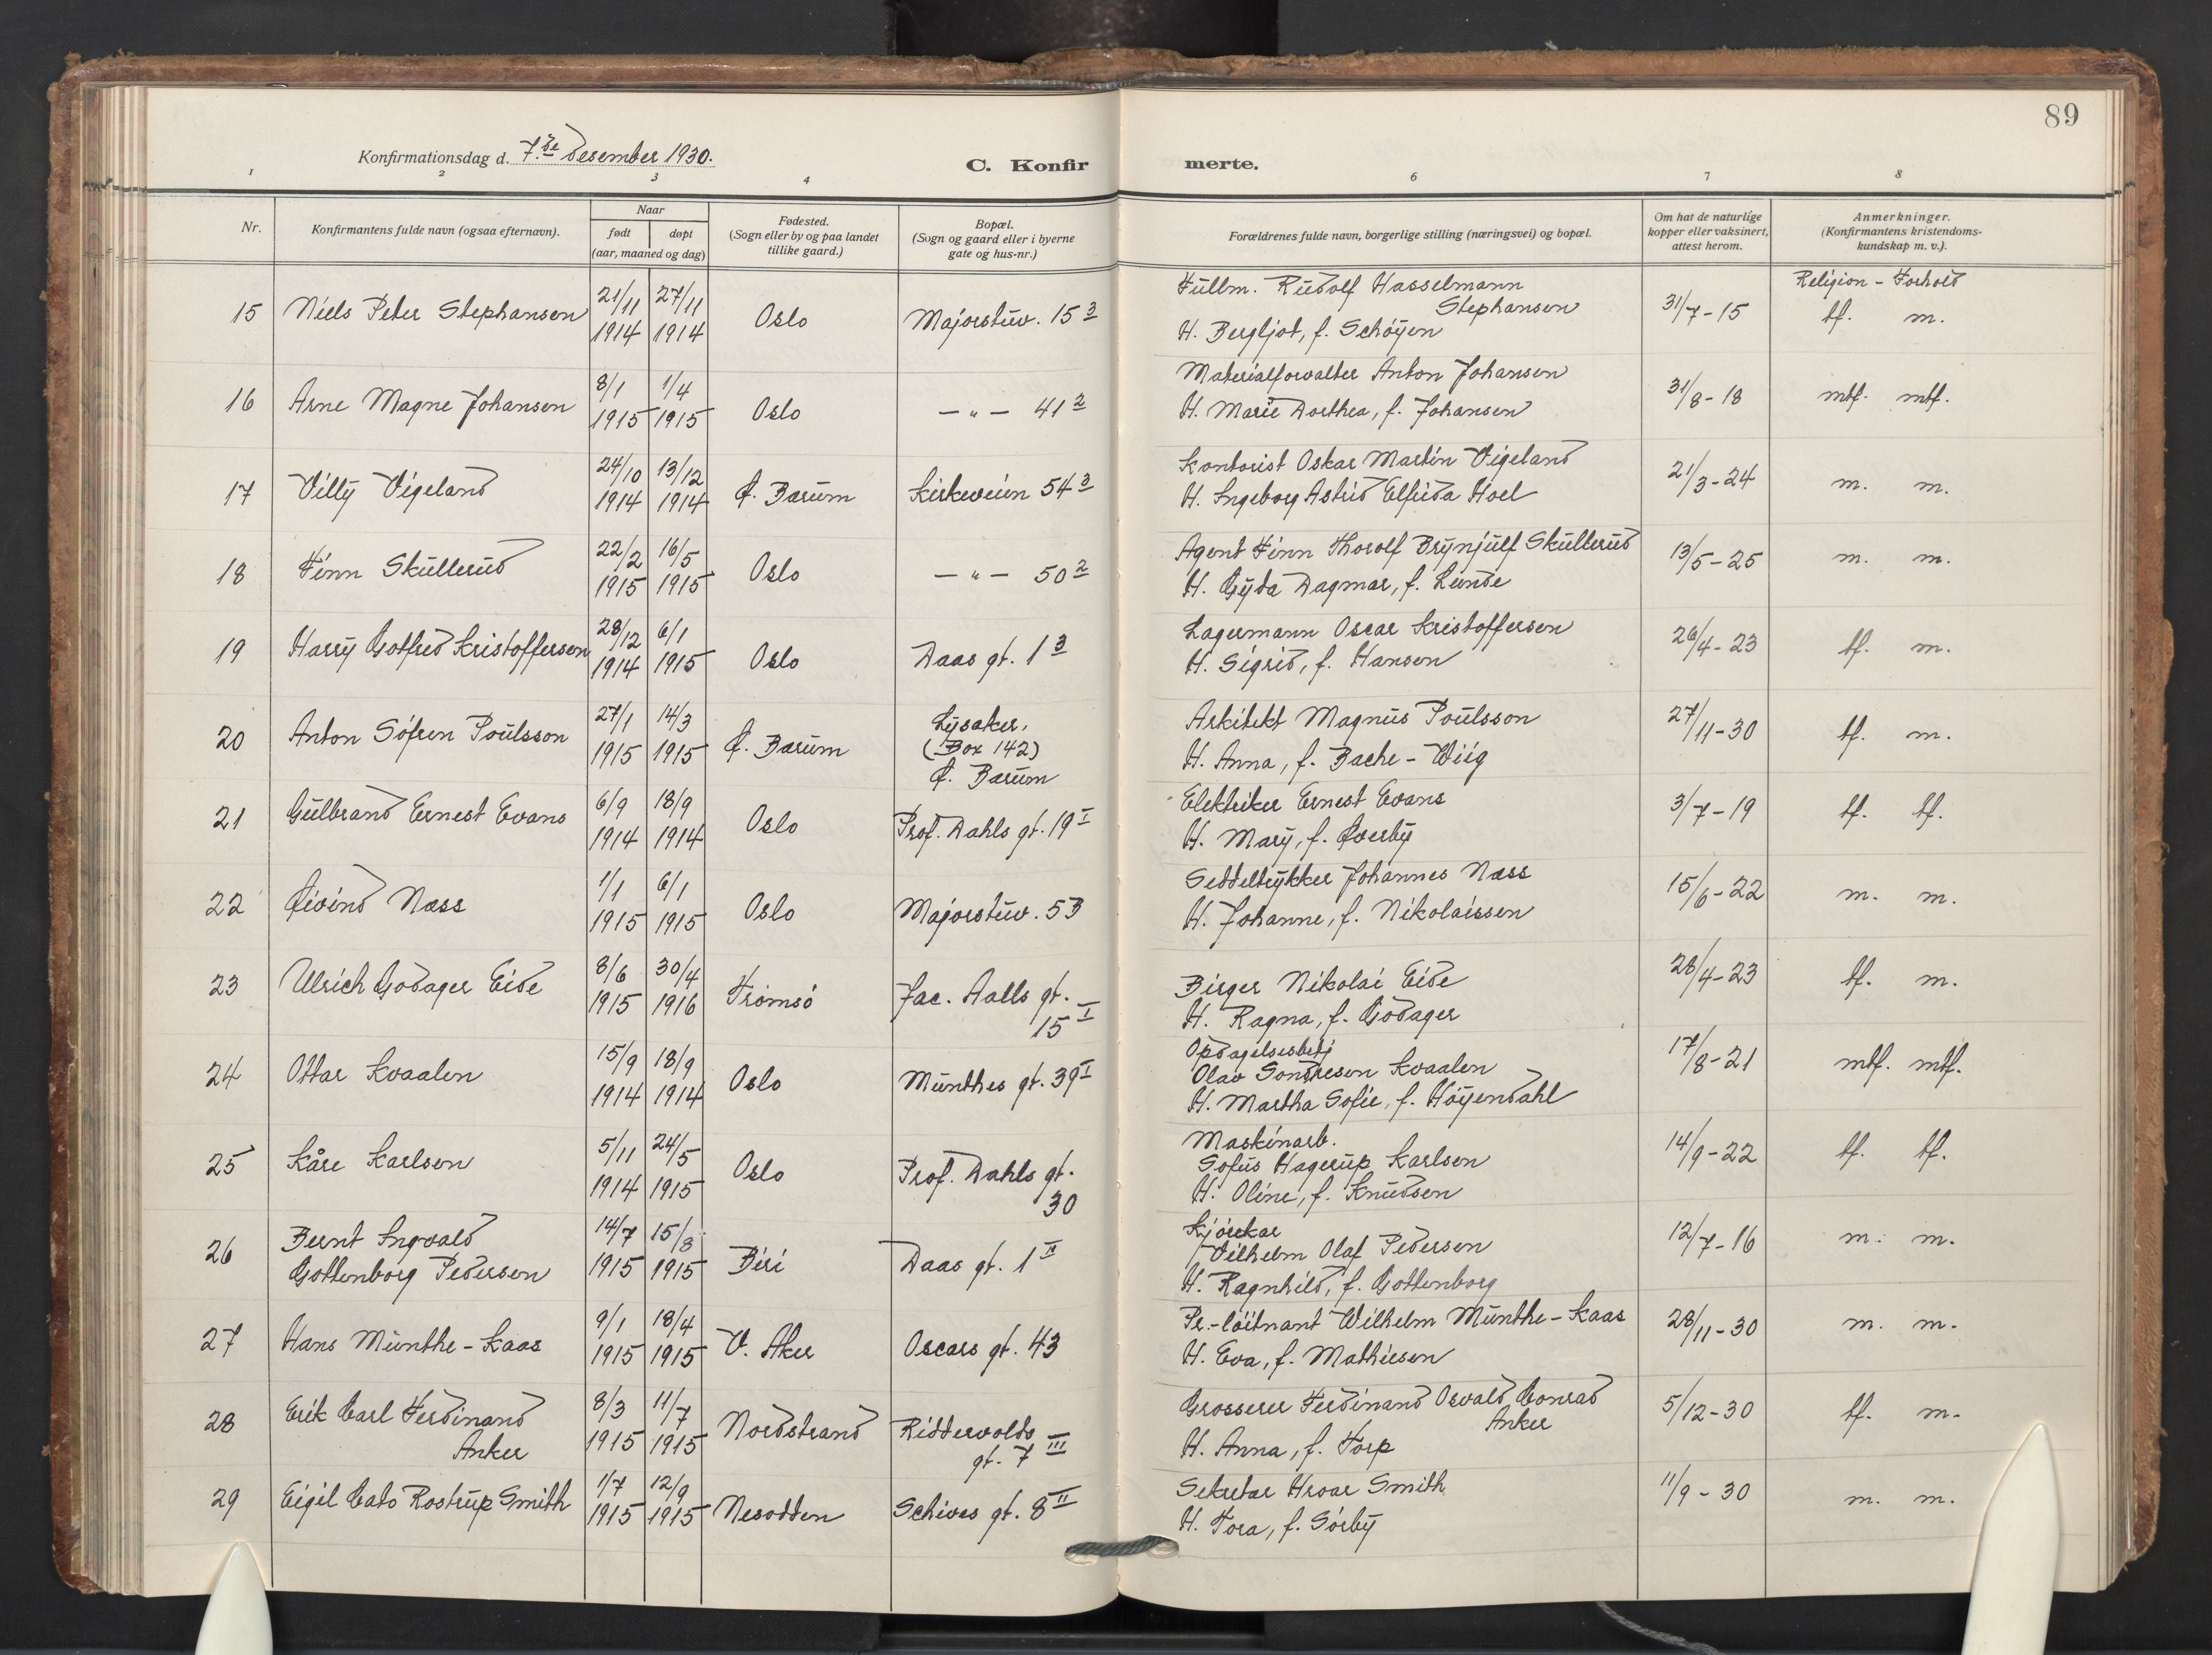 89
Konfirmationsdag d. 7.de Desember 1930. C. Konfirmerte.
1 2 3 4 6 7 8
Nr. | Konfirmantens fulde navn (ogsaa efternavn). | Naar født døpt (aar, maaned og dag) | Fødested. (Sogn eller by og paa landet tillike gaard.) | Bopæl. (Sogn og gaard eller i byerne gate og hus-nr.) | Forældrenes fulde navn, borgerlige stilling (næringsvei) og bopæl. | Om hat de naturlige kopper eller vaksinert, attest herom. | Anmerkninger. (Konfirmantens kristendomskundskap m. v.).
Religion - Forhold
15 Niels Peter Stephansen 21/11 1914 27/11 1914 Oslo Majorstuv. 15 3 Fullm. Rudolf Hasselmann Stephansen H. Bergljot, f. Schöyen 31/7-15 tf. m.
16 Arne Magne Johansen 8/1 1915 1/4 1915 Oslo — " — 41 2 Materialforvalter Anton Johansen H. Marie Dorthea, f. Johansen 31/8-18 mtf. mtf.
17 Villy Vigeland 24/10 1914 13/12 1914 Ø. Bærum Kirkeveien 54 3 Kontorist Oskar Martin Vigeland H. Ingeborg Astrid Elfrida Hoel 21/3-24 m. m.
18 Finn Skullerud 22/2 1915 16/5 1915 Oslo — " — 50 2 Agent Finn Thorolf Brynjulf Skullerud H. Gyda Dagmar, f. Lunde 13/5-25 m. m.
19 Harry Gotfred Kristoffersen 28/12 1914 6/1 1915 Oslo Daas gt. 1 3 Lagermann Oscar Kristoffersen H. Sigrid, f. Hansen 26/4-23 tf. m.
20 Anton Söfren Poulsson 27/1 1915 14/3 1915 Ø. Bærum Lysaker. (Box 142) Ø. Bærum Arkitekt Magnus Poulsson H. Anna, f. Bache-Wiig 27/11-30 tf. m.
21 Gulbrand Ernest Evans 6/9 1914 18/9 1914 Oslo Prof. Dahls gt. 19 I Elektriker Ernest Evans H. Mary, f. Øverby 3/7-19 tf. tf.
22 Øivind Næss 1/1 1915 6/1 1915 Oslo Majorstuv. 53 Seddeltrykker Johannes Næss H. Johanne, f. Nikolaissen 15/6-22 m. m.
23 Ulrich Godager Eide 8/6 1915 30/4 1916 Tromsö Jac. Aalls gt. 15 I Birger Nikolai Eide H. Ragna, f. Godager 28/4-23 tf. m.
24 Ottar Kvaalen 15/9 1914 18/9 1914 Oslo Munthes gt. 39 I Opdagelsesbetj Olav Sondresen Kvaalen H. Martha Sofie, f. Höyendahl 17/8-21 mtf. mtf.
25 Kåre Karlsen 5/11 1914 24/5 1915 Oslo Prof. Dahls gt. 30 Maskinarb. Sofus Hagerup Karlsen H. Oline, f. Knudsen 14/9-22 tf. tf.
26 Bernt Ingvald Gottenborg Pedersen 14/7 1915 15/8 1915 Biri Daas gt. 1 II Kjörekar Vilhelm Olaf Pedersen H. Ragnhild, f. Gottenborg 12/7-16 m. m.
27 Hans Munthe-Kaas 9/1 1915 18/4 1915 V. Aker Oscars gt. 43 Pr.-löitnant Wilhelm Munthe-Kaas H. Eva, f. Mathiesen 28/11-30 m. m.
28 Erik Carl Ferdinand Anker 8/3 1915 11/7 1915 Nordstrand Riddervolds gt. 7 III Grosserer Ferdinand Osvald Conrad Anker H. Anna, f. Torp 5/12-30 tf. m.
29 Eigil Cato Rostrup Smith 1/7 1915 12/9 1915 Nesodden Schives gt. 8 II Sekretær Hroar Smith H. Tora, f. Sörby 11/9-30 m. m.